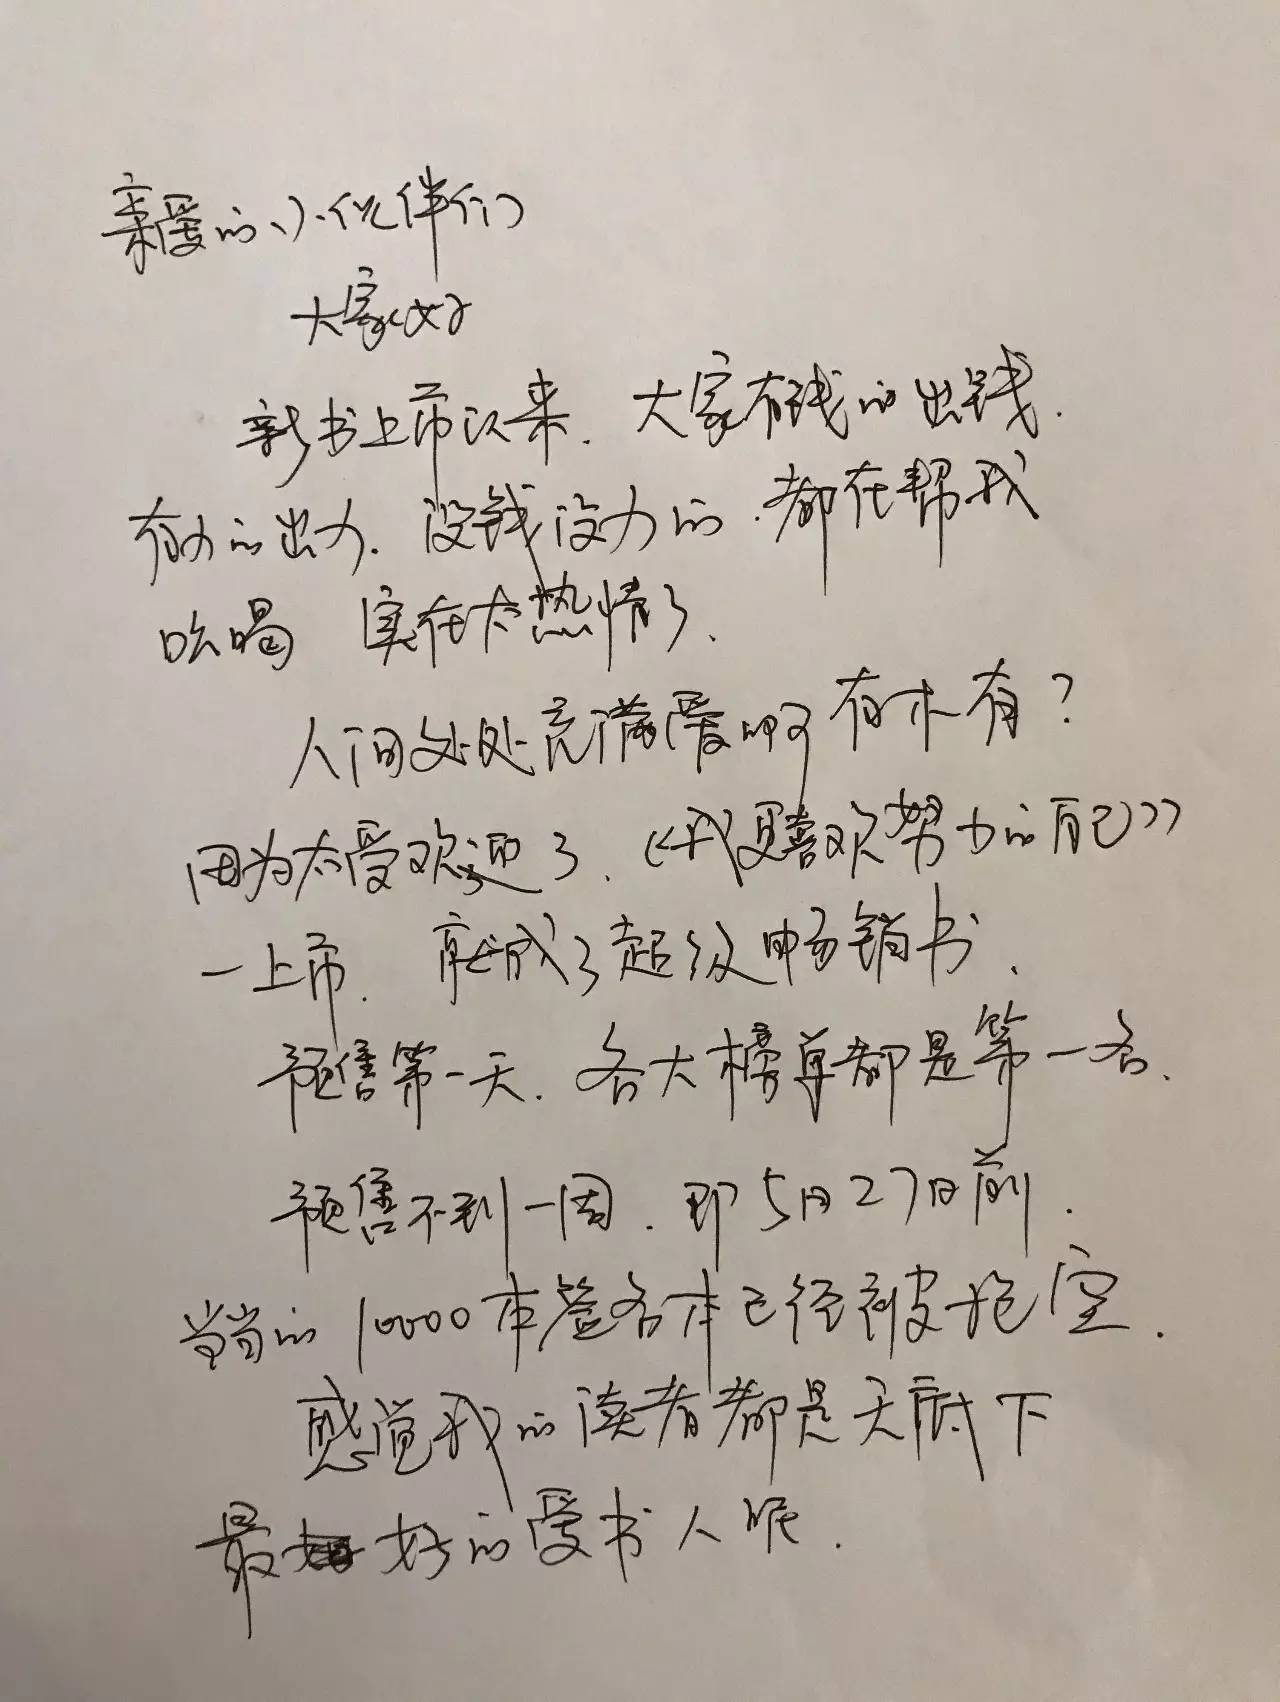 亲爱的小伙伴们
大家好
新书上市以来.大家有钱的出钱.
有力的出力.没钱没力的.都在帮我
吆喝 实在太热情了.
人间处处充满爱啊有木有?
因为太受欢迎了.《我更喜欢努力的自己》
一上市.就成了超级畅销书.
预售第一天.各大榜单都是第一名.
预售不到一周.即5月27日前.
当当的10000本签名本已经被抢空.
感觉我的读者都是天底下
最好的爱书人呢.